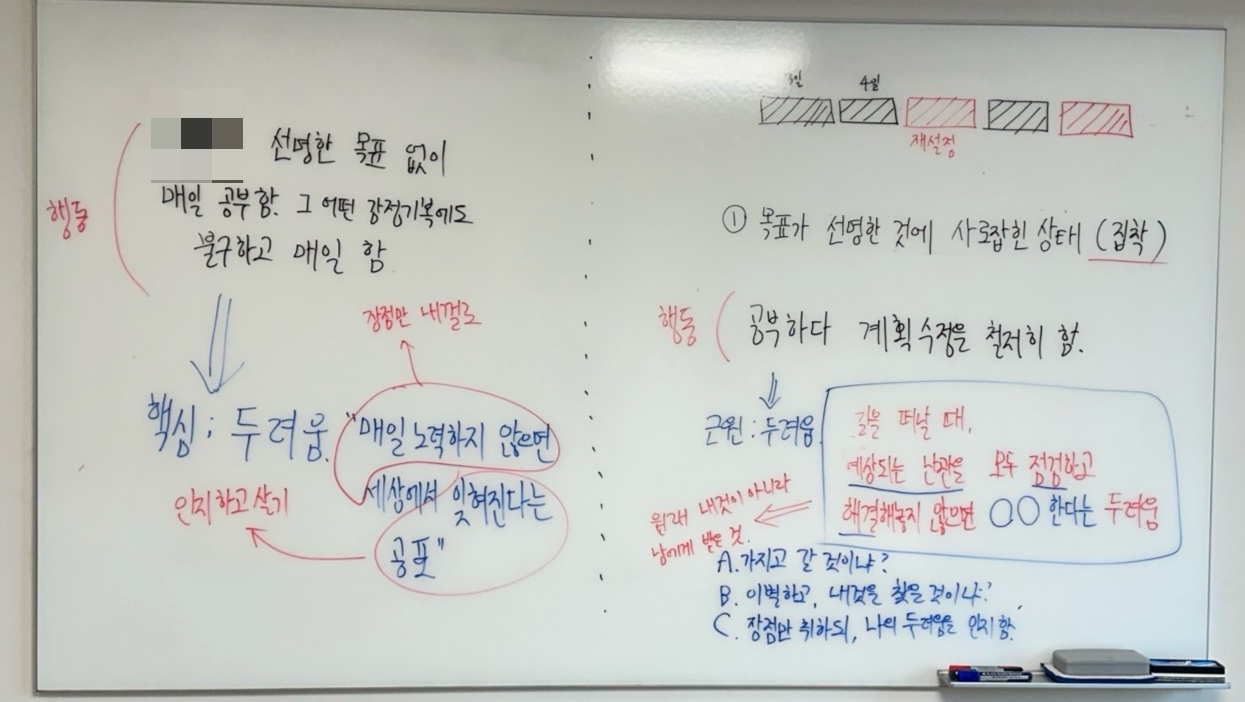 선명한 목표 없이
매일 공부함. 그 어떤 감정기복에도
불구하고 매일 함
행동
장점만 내껄로
핵심; 두려움.
"매일 노력하지 않으면
세상에서 잊혀진다는
공포"
인지하고 살기
3일 4일
재설정
① 목표가 선명한 것에 사로잡힌 상태 (집착)
행동
공부하다 계획수정을 철저히 함.
근원 : 두려움
길을 떠날 때,
예상되는 난관을 모두 점검하고
해결해놓지 않으면 ○○한다는 두려움
원래 내것이 아니라
남에게 받은 것.
A. 가지고 갈 것이냐?
B. 이별하고, 내것을 찾을 것이냐?
C. 장점만 취하되, 나의 두려움을 인지함.